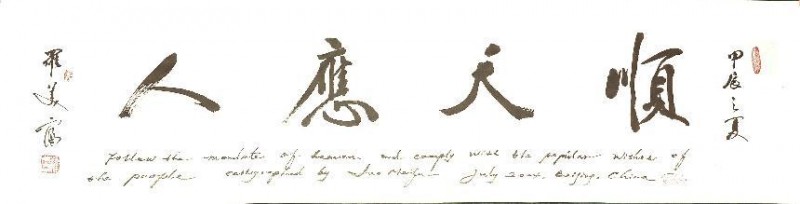 甲辰之夏
順天應人
羅美富
Follow the mandate of heaven and comply with the popular wishes of
the people by Luo Meifu July 2024, Beijing, China